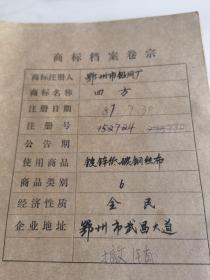 商标档案卷宗
商标注册人 鄂州市铅网厂
商标名称 四方
注册日期 87.7.30
注册号 152724
公告期
使用商品 镀锌低碳钢丝布
商品类别 6
经济性质 全民
企业地址 鄂州市武昌大道
撤销